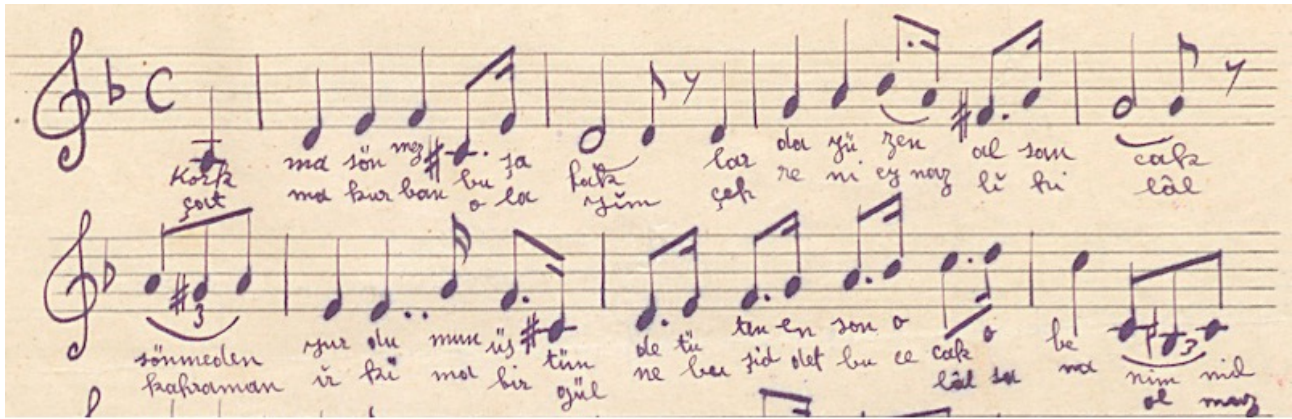 Kork ma sön mez bu şa fak lar da yü zen al san cak
çat ma kur ban o la yım çeh re ni ey naz lı hi lâl
3 3
sönmeden yur du mun üs tün de tü ten en son o cak o be nim mil
kahraman ır kı ma bir gül ne bu şid det bu ce lâl sa na ol maz